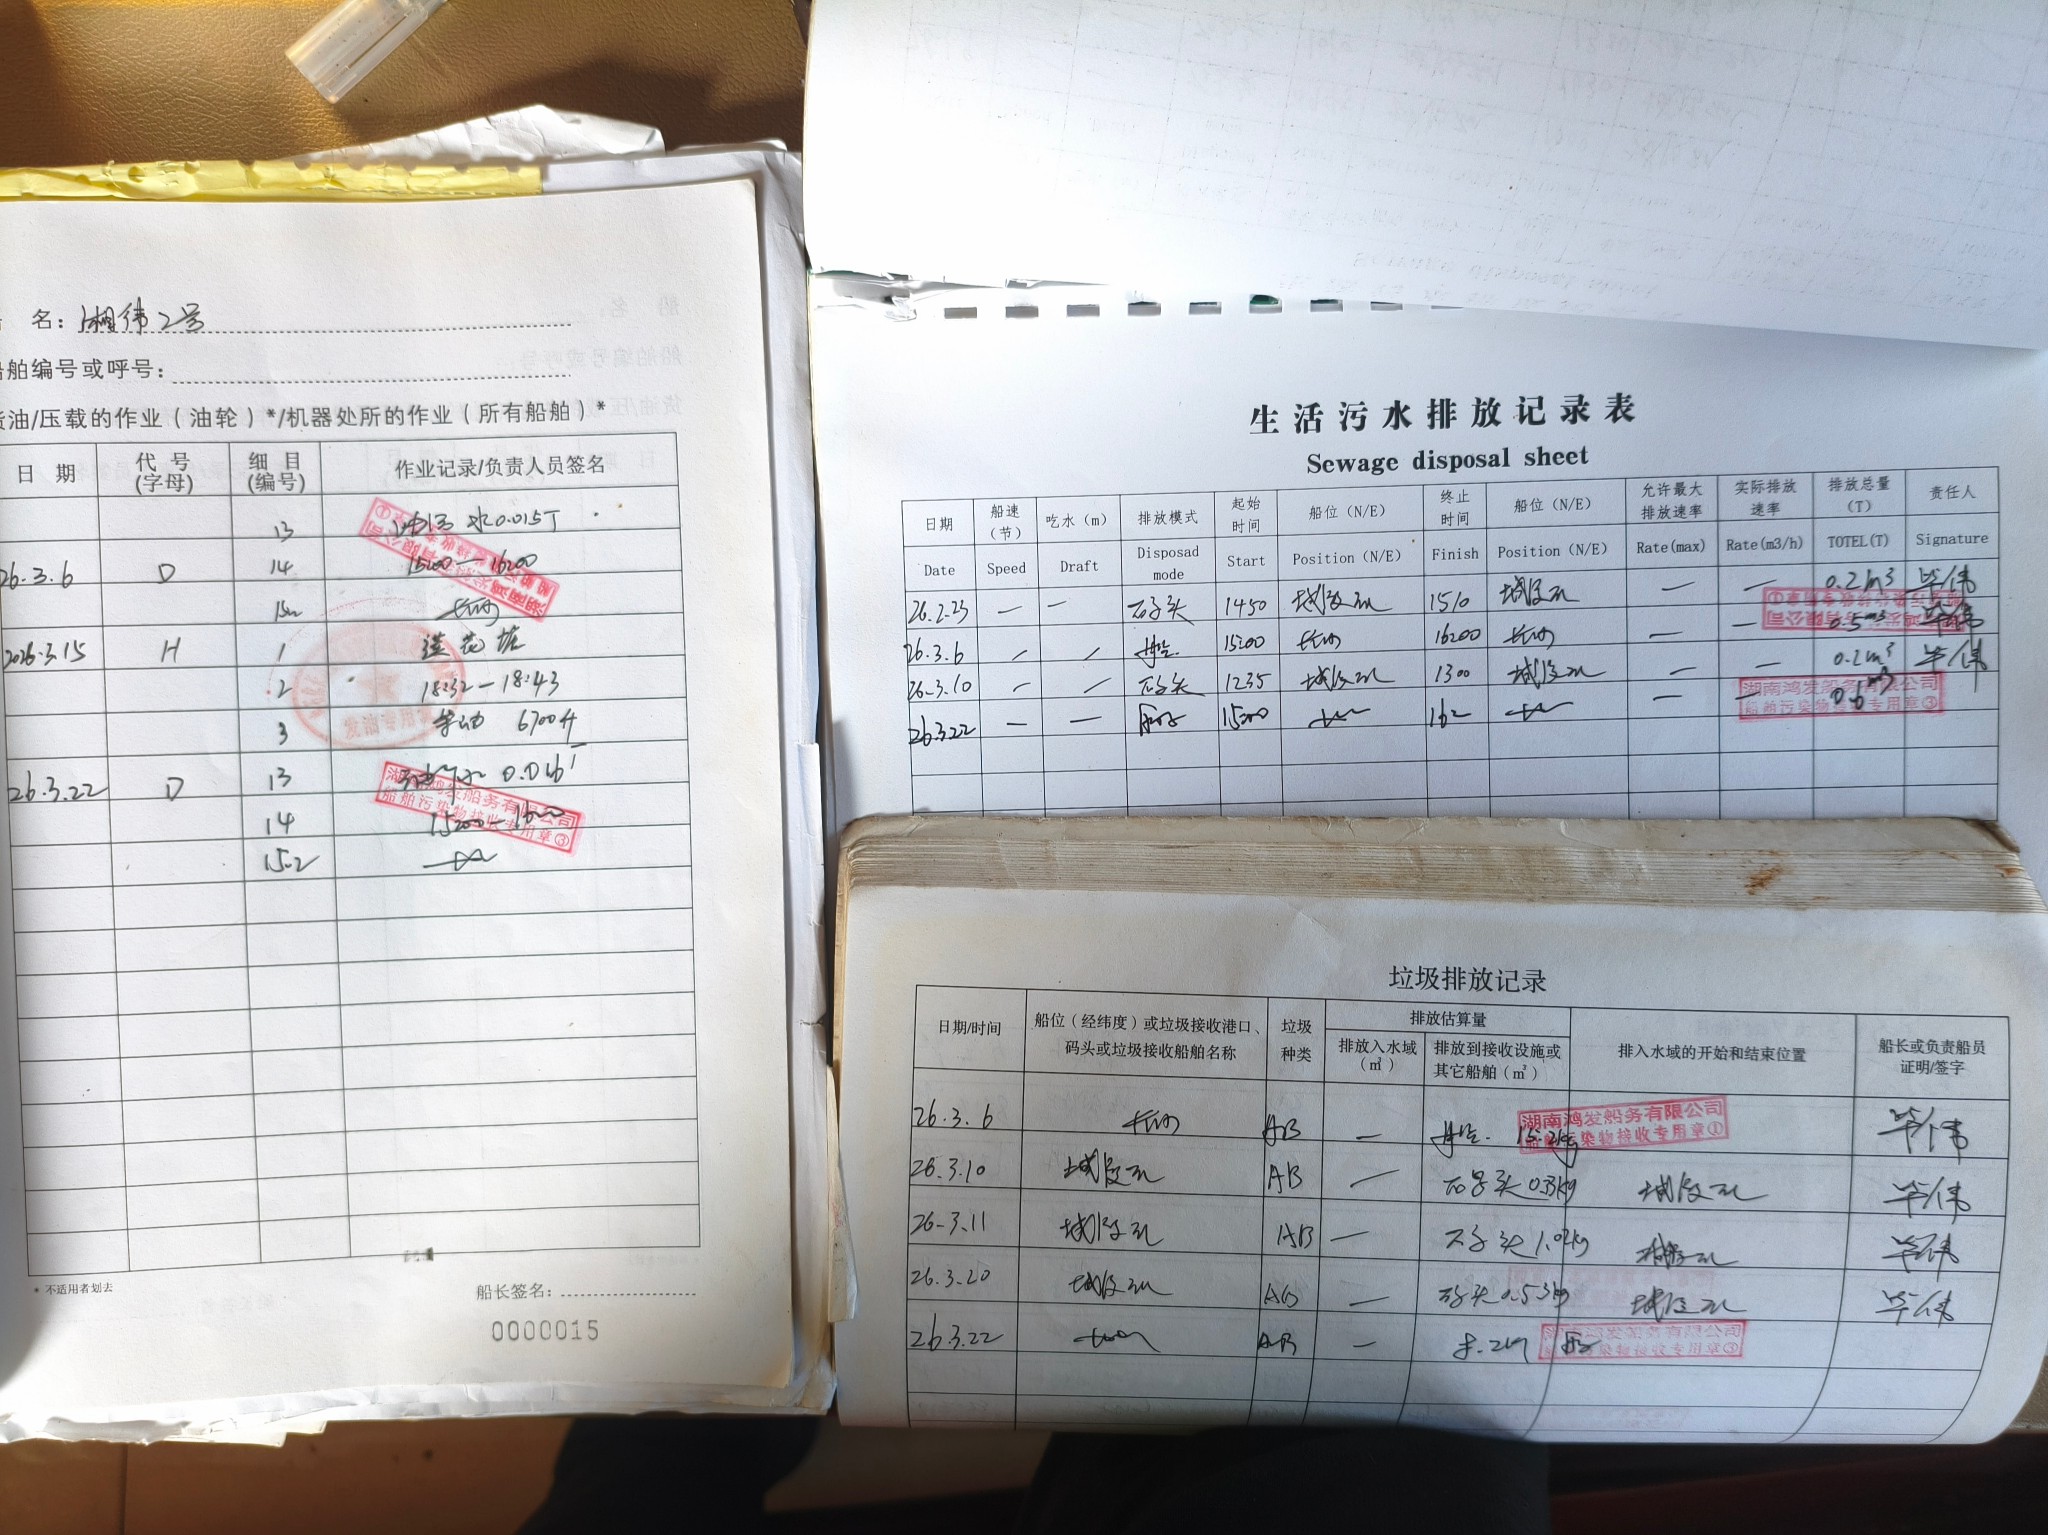 名：湘伟2号
舶编号或呼号：
货油/压载的作业（油轮）*/机器处所的作业（所有船舶）*
日 期 代 号 (字母) 细 目 (编号) 作业记录/负责人员签名
13 油污水0.015T
26.3.6 D 14 15:00—16:00
15.2 长沙
2026.3.15 H 1 莲花塘
2 18:32—18:43
3 柴油 6700升
26.3.22 D 13
14
15.2
发油专用章
湖南鸿发船务有限公司
船舶污染物接收专用章③
* 不适用者划去
船长签名：
0000015
生活污水排放记录表
Sewage disposal sheet
日期 船速（节） 吃水（m） 排放模式 起始时间 船位（N/E） 终止时间 船位（N/E） 允许最大排放速率 实际排放速率 排放总量（T） 责任人
Date Speed Draft Disposad mode Start Position (N/E) Finish Position (N/E) Rate(max) Rate(m3/h) TOTEL(T) Signature
26.2.23 — — 石子头 1450 城陵矶 1510 城陵矶 — — 0.2m³ 毕伟
26.3.6 长沙 长沙 — — 0.5m³ 毕伟
26.3.10 石子头 1235 城陵矶 1300 城陵矶 — — 0.2m³ 毕伟
26.3.22 — — — —
湖南鸿发船务有限公司
船舶污染物接收专用章③
垃圾排放记录
日期/时间 船位（经纬度）或垃圾接收港口、码头或垃圾接收船舶名称 垃圾种类 排放估算量 排放入水域（㎥） 排放到接收设施或其它船舶（㎥） 排入水域的开始和结束位置 船长或负责船员证明/签字
26.3.6 长沙 AB — 毕伟
湖南鸿发船务有限公司
船舶污染物接收专用章①
26.3.10 城陵矶 AB — 石子头 城陵矶 毕伟
26.3.11 城陵矶 AB — 石子头 城陵矶 毕伟
26.3.20 城陵矶 AB — 石子头 城陵矶 毕伟
26.3.22 AB —